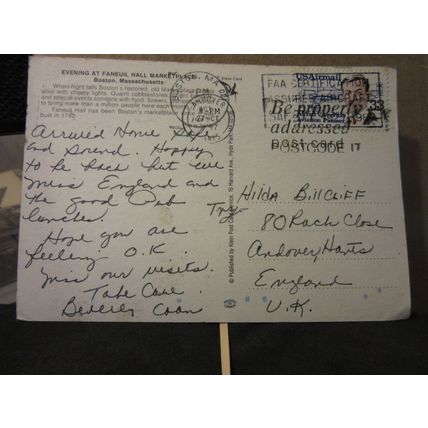 EVENING AT FANEUIL HALL MARKETPLACE
Boston, Massachusetts
When night falls Boston's restored, old
alive with cheery lights. Quaint cobblestones
and special events combine with food, flowers,
to bring more than a million people here each
Faneuil Hall has been Boston's marketplace
built in 1742.
Arrived Home
and Sound. Happy
to be back but we
miss England and
the good Pub
lunches.
Hope you are
feeling O.K.
Miss our visits.
Take Care
Beverly
© Published by Klein Post Card Service, 16 Harvard Ave., Hyde Park,
ANDOVER
USAirmail
33
FAA CERTIFICATION
ASSURES AIRCRAFT
Be properly
addressed
post card
POSTCODE IT
Hilda Billcliff
80 Rack Close
Andover Hants
England
U.K.